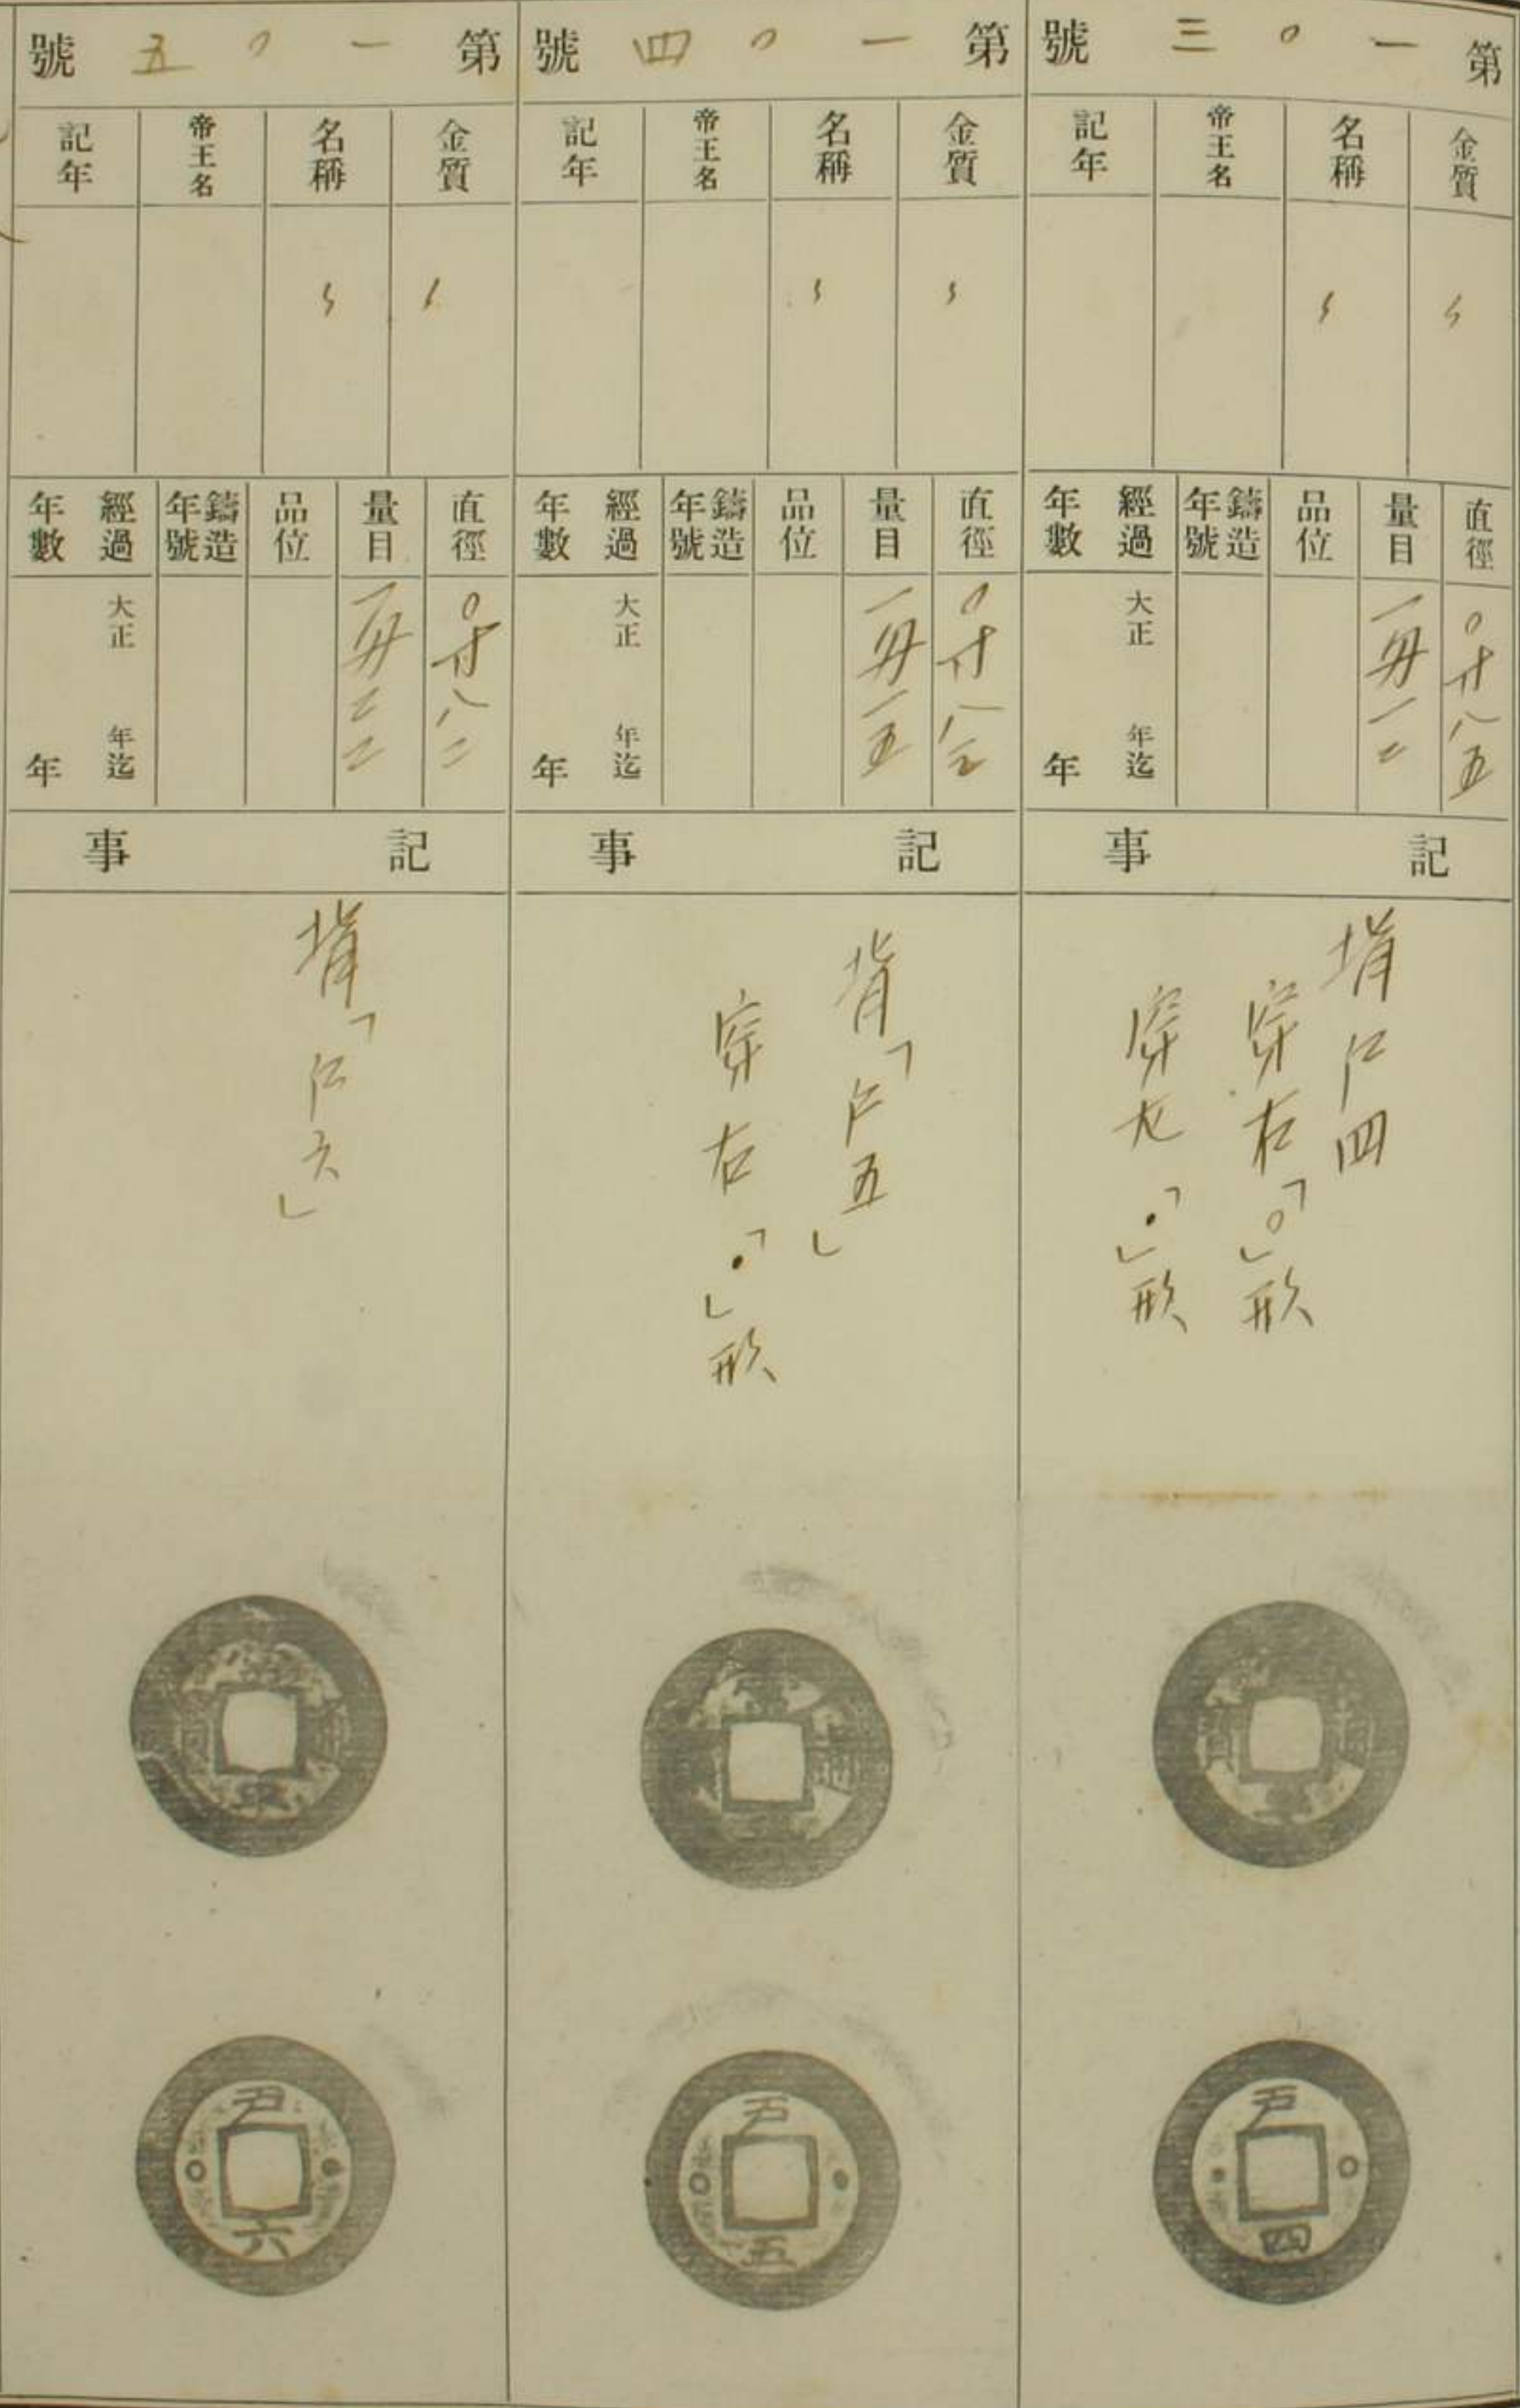 第一〇三號
金質
名稱
帝王名
記年
〻
〻
直徑
量目
品位
鑄造年號
經過年數
〇寸八五
一匁一二
大正 年迄
年
記事
背戶四
穿右「○」形
穿左「•」形
通
寶
戶
四
第一〇四號
金質
名稱
帝王名
記年
〻
〻
直徑
量目
品位
鑄造年號
經過年數
一匁一五
大正 年迄
年
記事
背「戶五」
穿右「•」形
常
通
戶
五
第一〇五號
金質
名稱
帝王名
記年
〻
〻
直徑
量目
品位
鑄造年號
經過年數
〇寸八二
一匁二二
大正 年迄
年
記事
背「戶六」
常
平
通
寶
戶
六